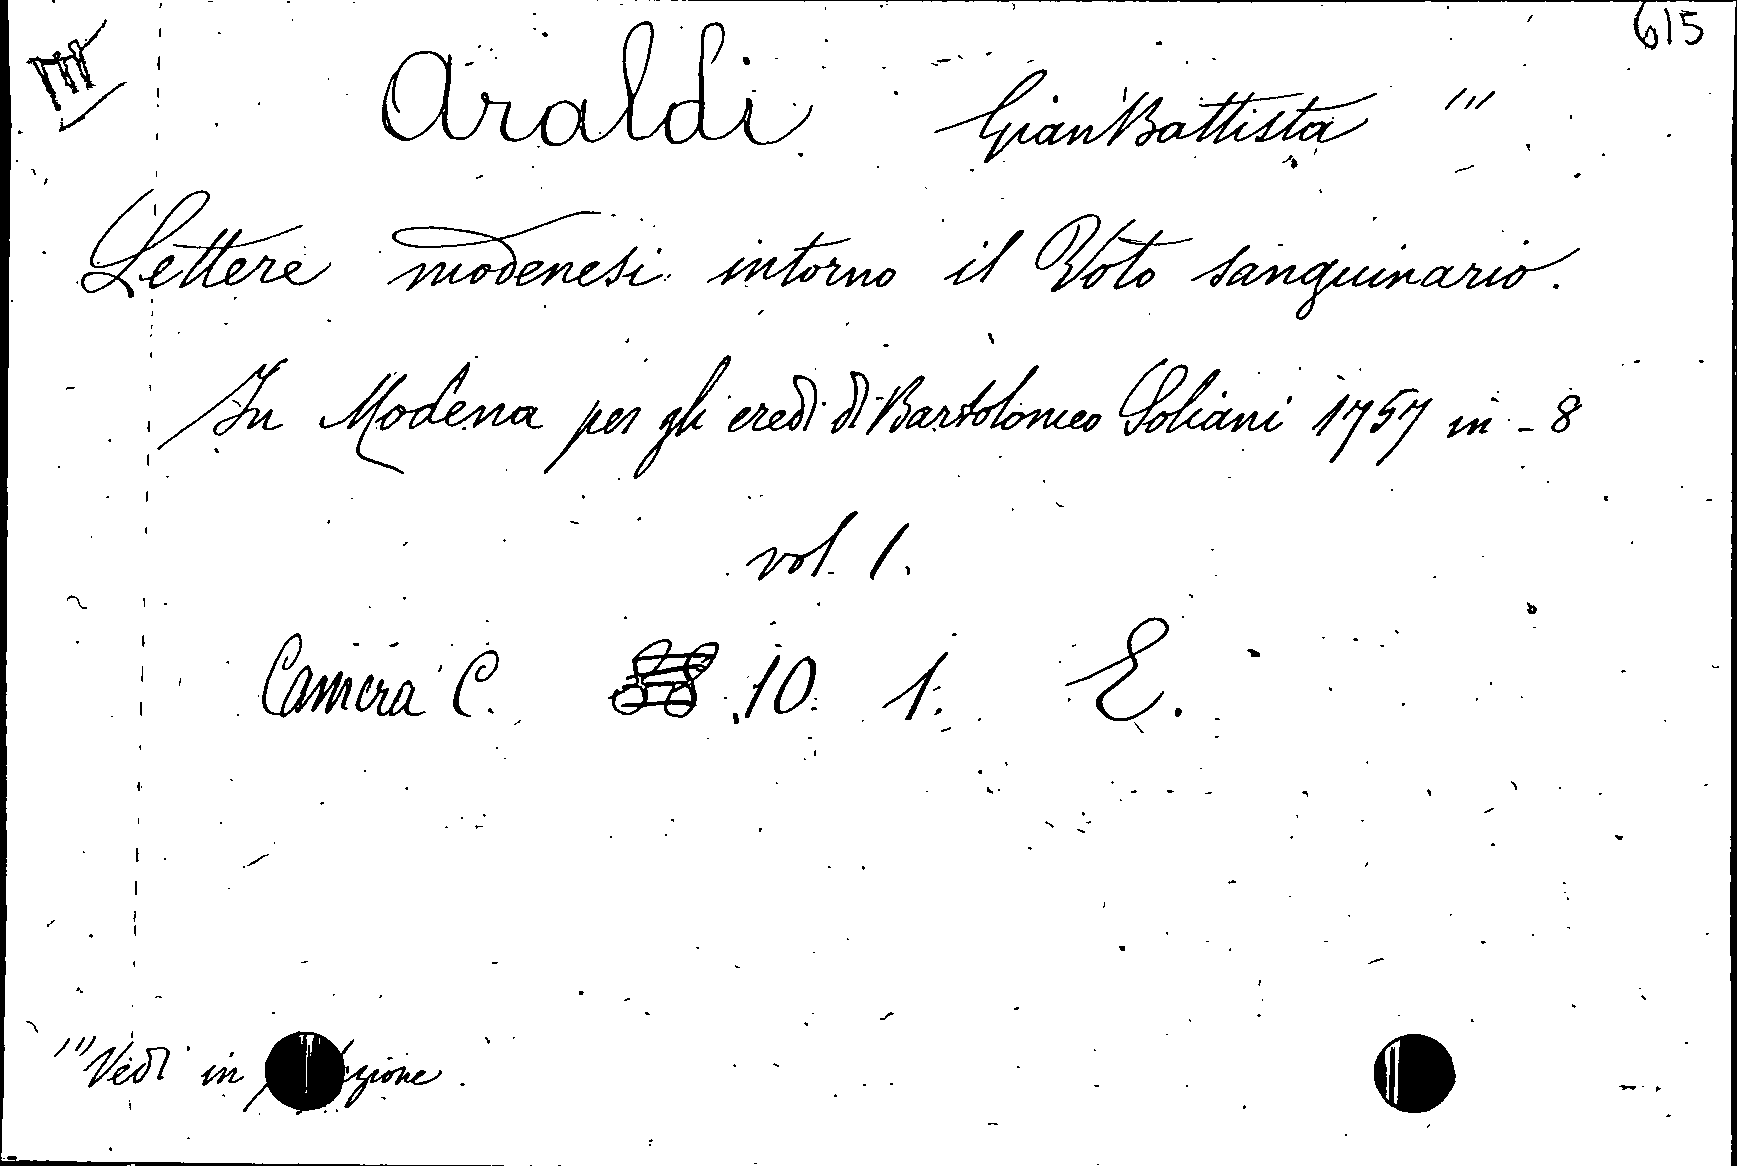 615
III
Araldi GianBattista '''
Lettere modenesi intorno il Voto sanguinario.
In Modena per gli eredi di Bartolomeo Soliani 1757 in-8
vol. 1.
Camera C. 10. 1. E.
''' Vedi in